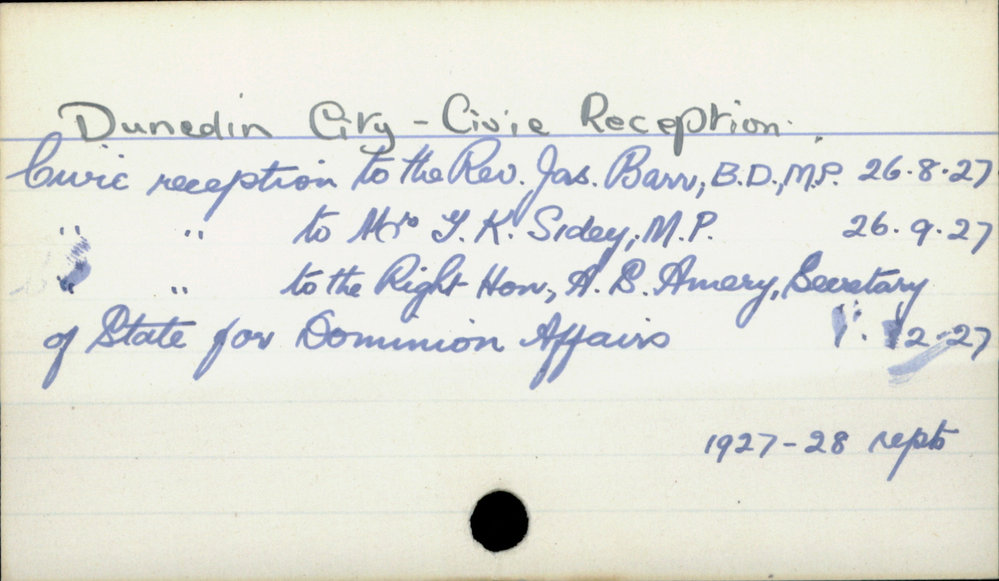 Dunedin City - Civic Reception.
Civic reception to the Rev. Jas. Barr, B.D., M.P. 26.8.27
" " to Mr T. K. Sidey, M.P. 26.9.27
" " to the Right Hon, A. B. Amery, Secretary
of State for Dominion Affairs 1. 12.27
1927-28 repts